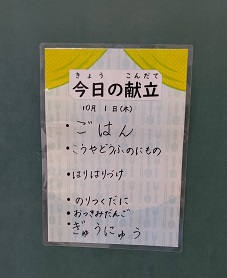 きょう　こんだて
今日の献立
10月 1日(木)
・ごはん
・こうやどうふのにもの
・はりはりづけ
・のりつくだに
・おつきみだんご
・ぎゅうにゅう